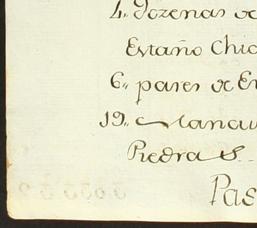 4.. Dozenas de
Estaño Chic
6.. pares de E
19..
Piedras.
Pas